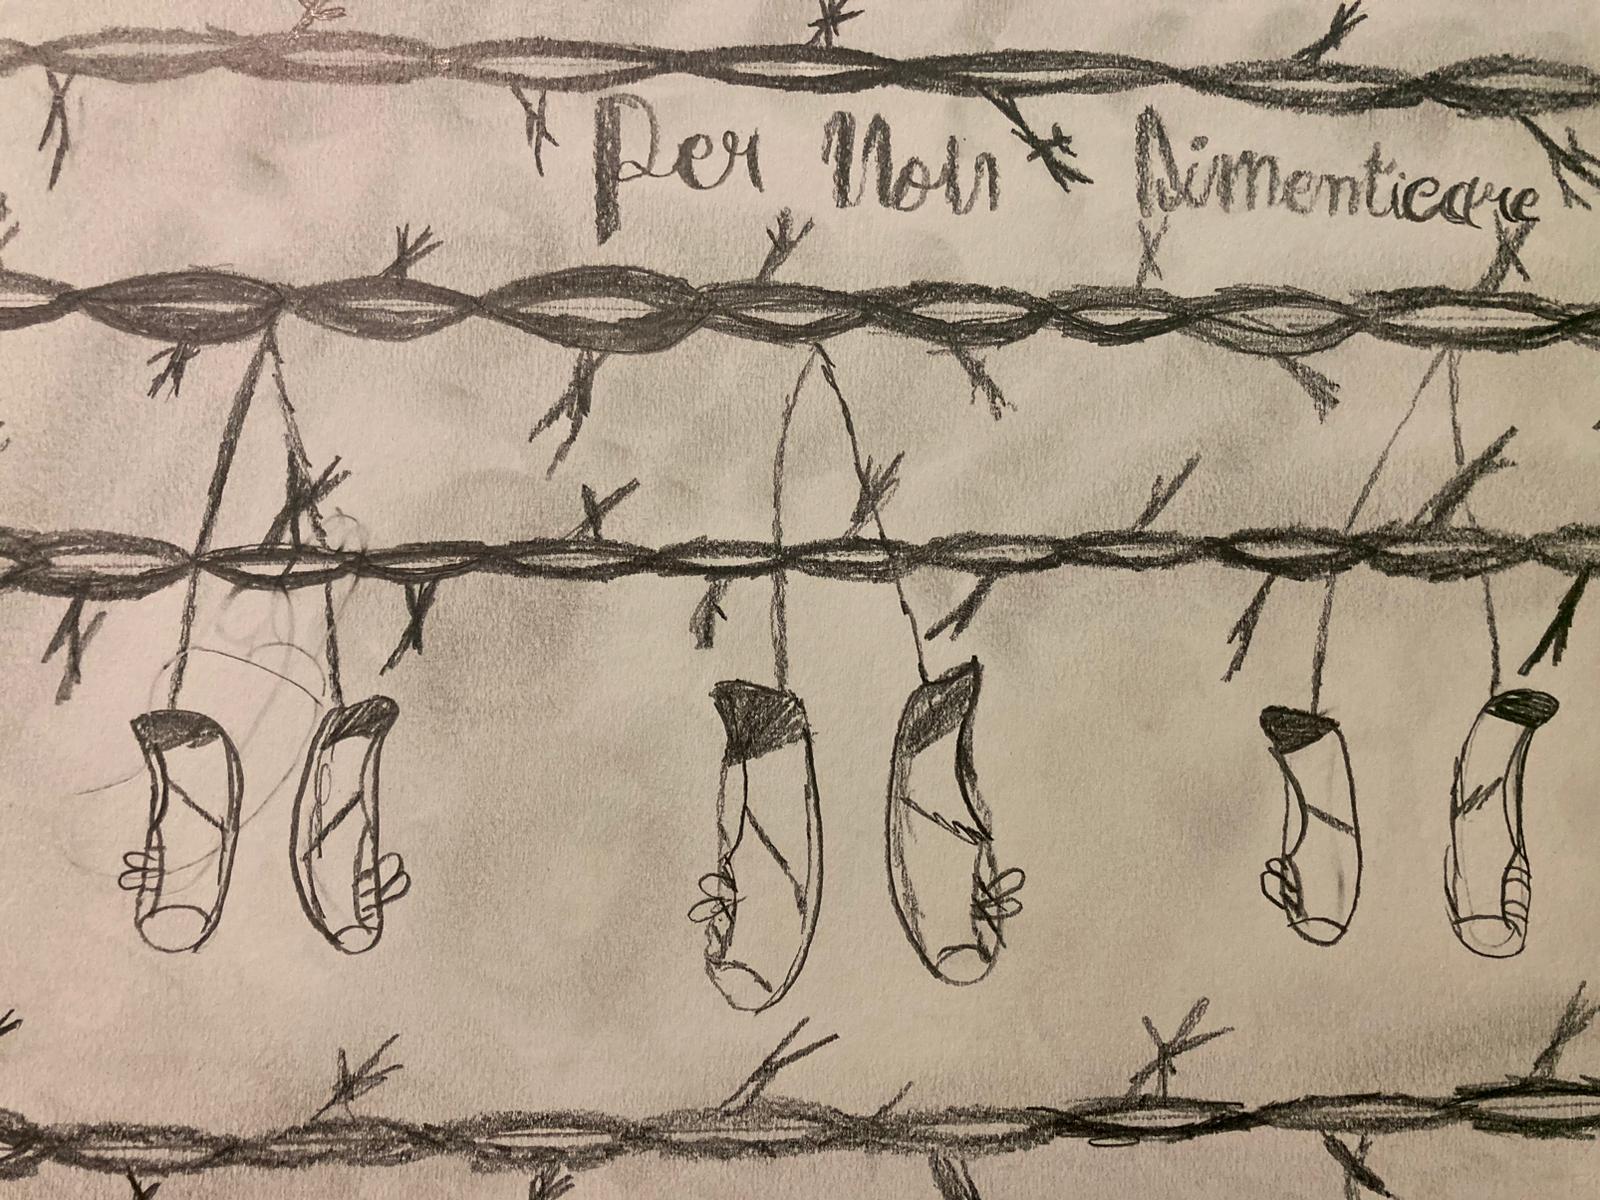 Per Non Dimenticare